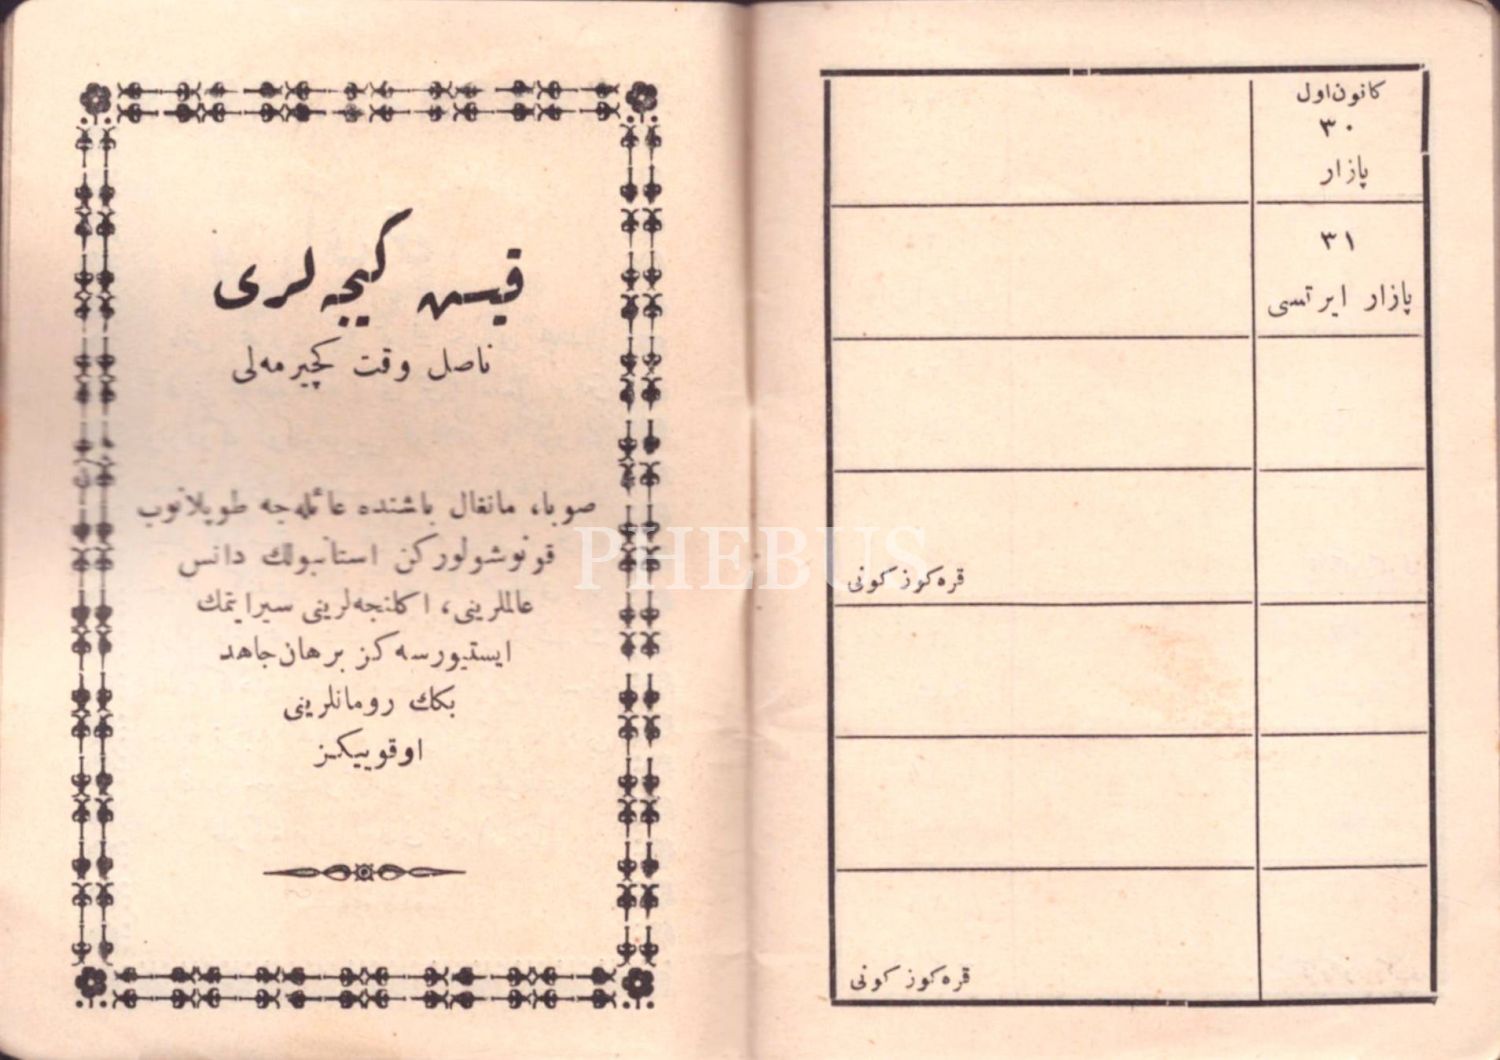 قیش كیجه‌لری
ناصل وقت كچیرمه‌لی
صوبا، مانغال باشنده عائله‌جه طوپلانوب
قونوشولوركن استانبولك دانس
عالملرینی، اكلنجه‌لرینی سیرایتمك
ایستیورسه‌كز برهان جاهد
بكك رومانلرینی
اوقوییكز
كانون اول
۳۰
پازار
۳۱
پازار ایرتسی
قره‌كوز كونی
قره‌كوز كونی
PHEBUS